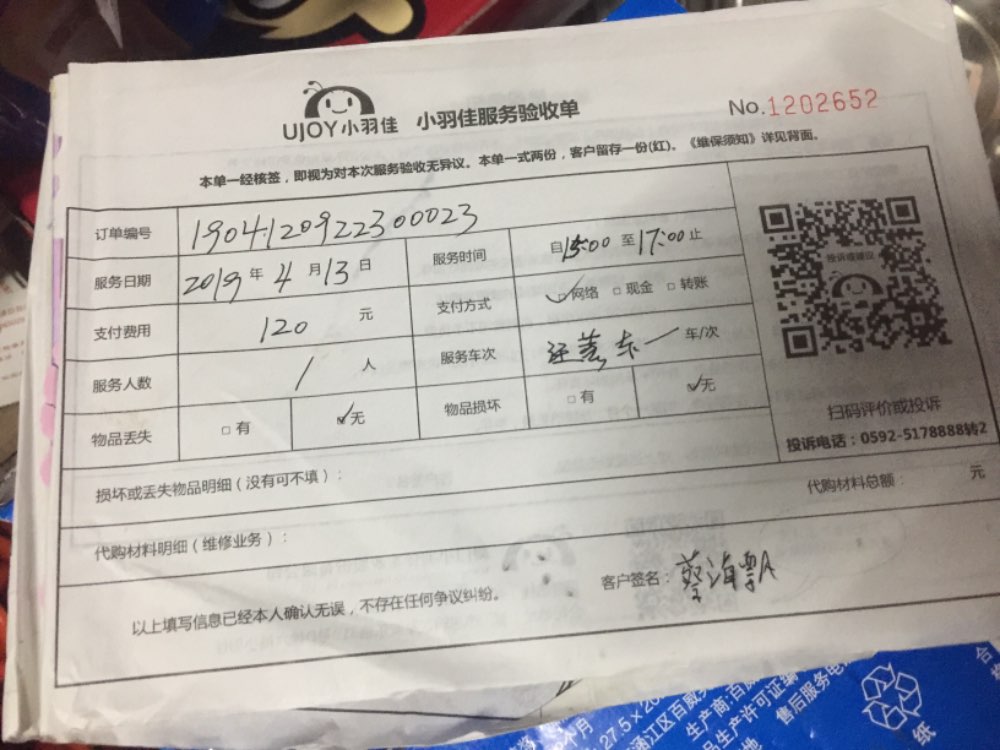 UJOY小羽佳 小羽佳服务验收单 No.1202652
本单一经核签，即视为对本次服务验收无异议。本单一式两份，客户留存一份(红)。《维保须知》详见背面。
订单编号 1904120922300023
服务日期 2019年4月13日 服务时间 自15:00至17:00止
支付费用 120 元 支付方式 ☑网络 □现金 □转账
服务人数 1 人 服务车次 车/次
物品丢失 □有 ☑无 物品损坏 □有 ☑无
投诉或建议
扫码评价或投诉
投诉电话：0592-5178888转2
损坏或丢失物品明细（没有可不填）：
代购材料明细（维修业务）： 代购材料总额： 元
以上填写信息已经本人确认无误，不存在任何争议纠纷。 客户签名：蔡海
合
纸